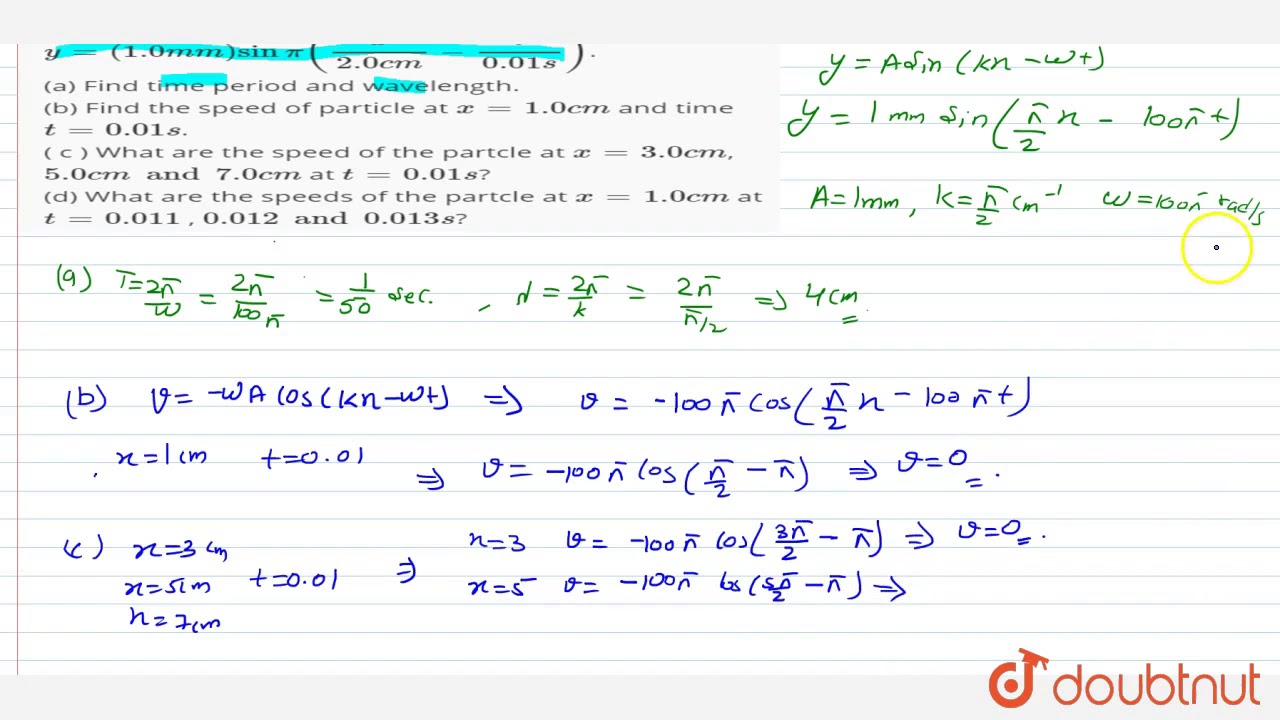 y = (1.0mm) sin π( / 2.0cm − / 0.01s ).
(a) Find time period and wavelength.
(b) Find the speed of particle at x = 1.0cm and time
t = 0.01s.
( c ) What are the speed of the partcle at x = 3.0cm,
5.0cm and 7.0cm at t = 0.01s?
(d) What are the speeds of the partcle at x = 1.0cm at
t = 0.011 , 0.012 and 0.013s?
y = A sin (kx − ωt)
y = 1 mm sin(π/2 x − 100πt)
A = 1mm, k = π/2 cm⁻¹ ω = 100π rad/s
(a) T = 2π/ω = 2π/100π = 1/50 sec. , λ = 2π/k = 2π/π/2 ⇒ 4cm
(b) v = −ωA cos(kx−ωt) ⇒ v = −100π cos(π/2 x − 100πt)
x = 1cm t = 0.01 ⇒ v = −100π cos(π/2 − π) ⇒ v = 0.
(c) x = 3cm ⇒ x = 3 v = −100π cos(3π/2 − π) ⇒ v = 0.
x = 5cm t = 0.01 x = 5 v = −100π cos(5π/2 − π) ⇒
x = 7cm
doubtnut